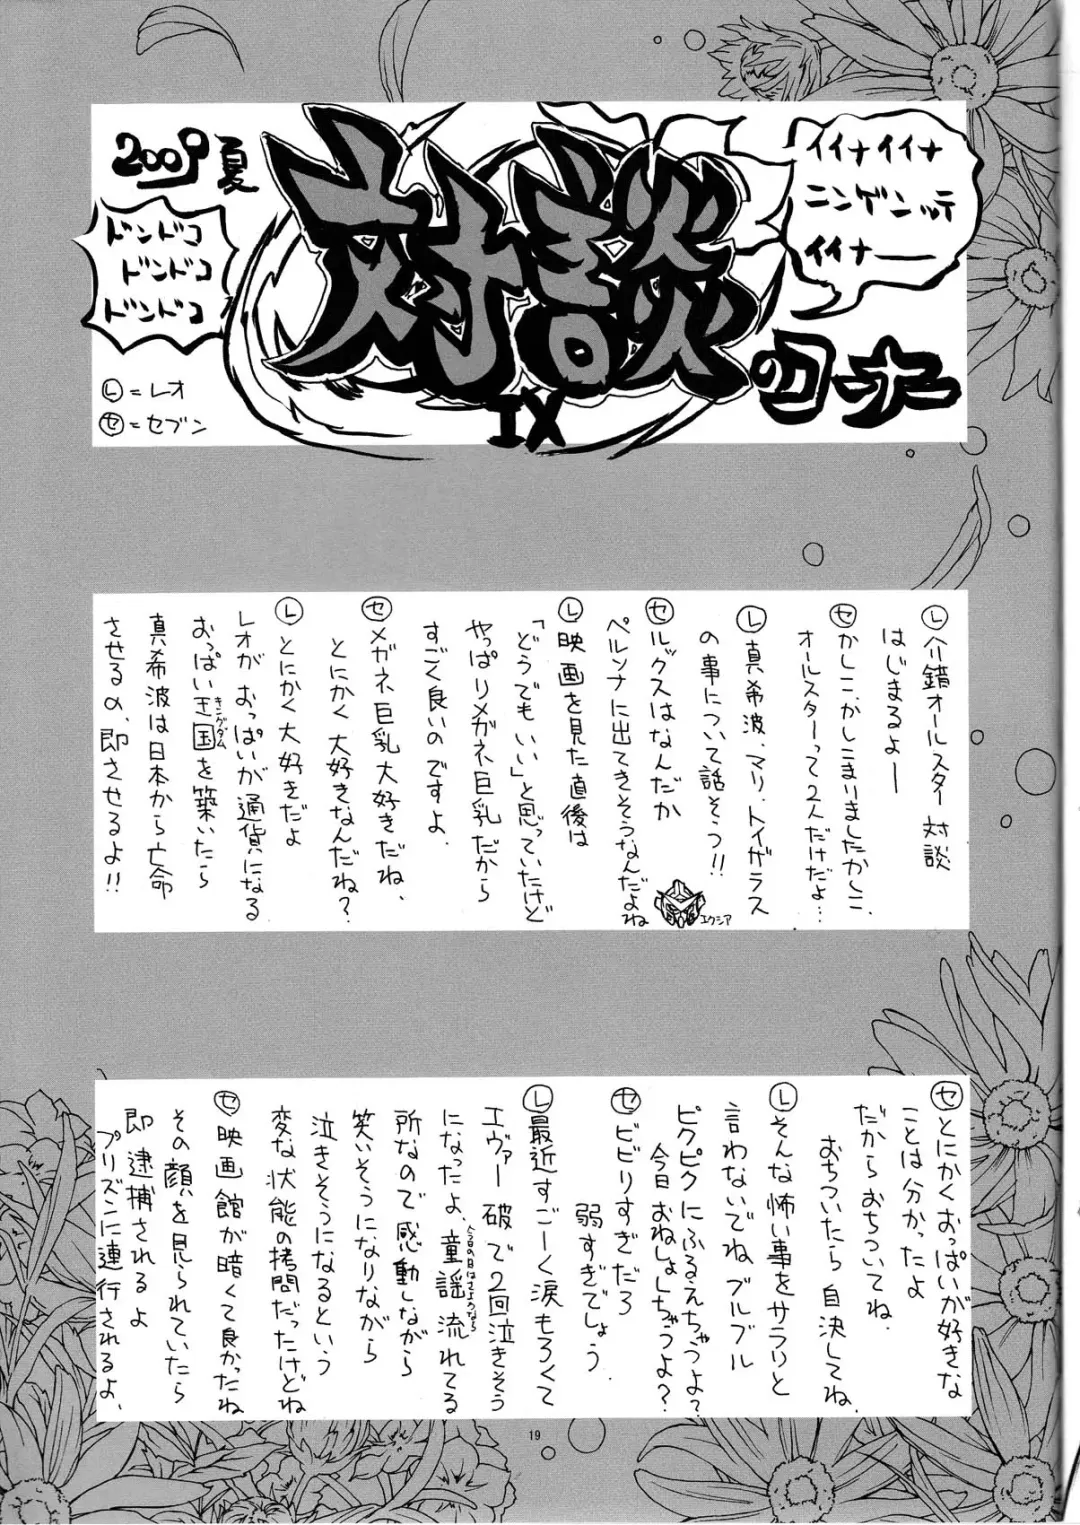 2009夏
対談
IX
のコーナー
イイナイイナ
ニンゲンッテ
イイナー
ドンドコ
ドンドコ
ドンドコ
Ⓛ=レオ
㋝=セブン
Ⓛ介錯オールスター対談
はじまるよー
㋝かしこ、かしこまりましたかしこ、
オールスターって2人だけだよ…
Ⓛ真希波、マリ、トイガラス
の事について話そう!!
㋝ルックスはなんだか
ペルソナに出てきそうなんだよね
エクシア
Ⓛ映画を見た直後は
「どうでもいい」と思っていたけど
やっぱりメガネ巨乳だから
すごく良いのですよ
㋝メガネ巨乳大好きだね、
とにかく大好きなんだね?
Ⓛとにかく大好きだよ
レオがおっぱいが通貨になる
おっぱい王国を築いたら
キングダム
真希波は日本から亡命
させるの、即させるよ!!
㋝とにかくおっぱいが好きな
ことは分かったよ
だからおちついてね、
おちついたら自決してね、
Ⓛそんな怖い事をサラリと
言わないでね、ブルブル
ピクピクにふるえちゃうよ?
今日おねしょしちゃうよ?
㋝ビビりすぎだろ
弱すぎでしょう
Ⓛ最近すごーく涙もろくて
エヴァー破で2回泣きそう
になったよ、童謡流れてる
今日の日はさようなら
所なので感動しながら
笑いそうになりながら
泣きそうになるという
変な状態の拷問だったけどね
㋝映画館が暗くて良かったね
その顔を見られていたら
即逮捕されるよ
プリズンに連行されるよ、
19